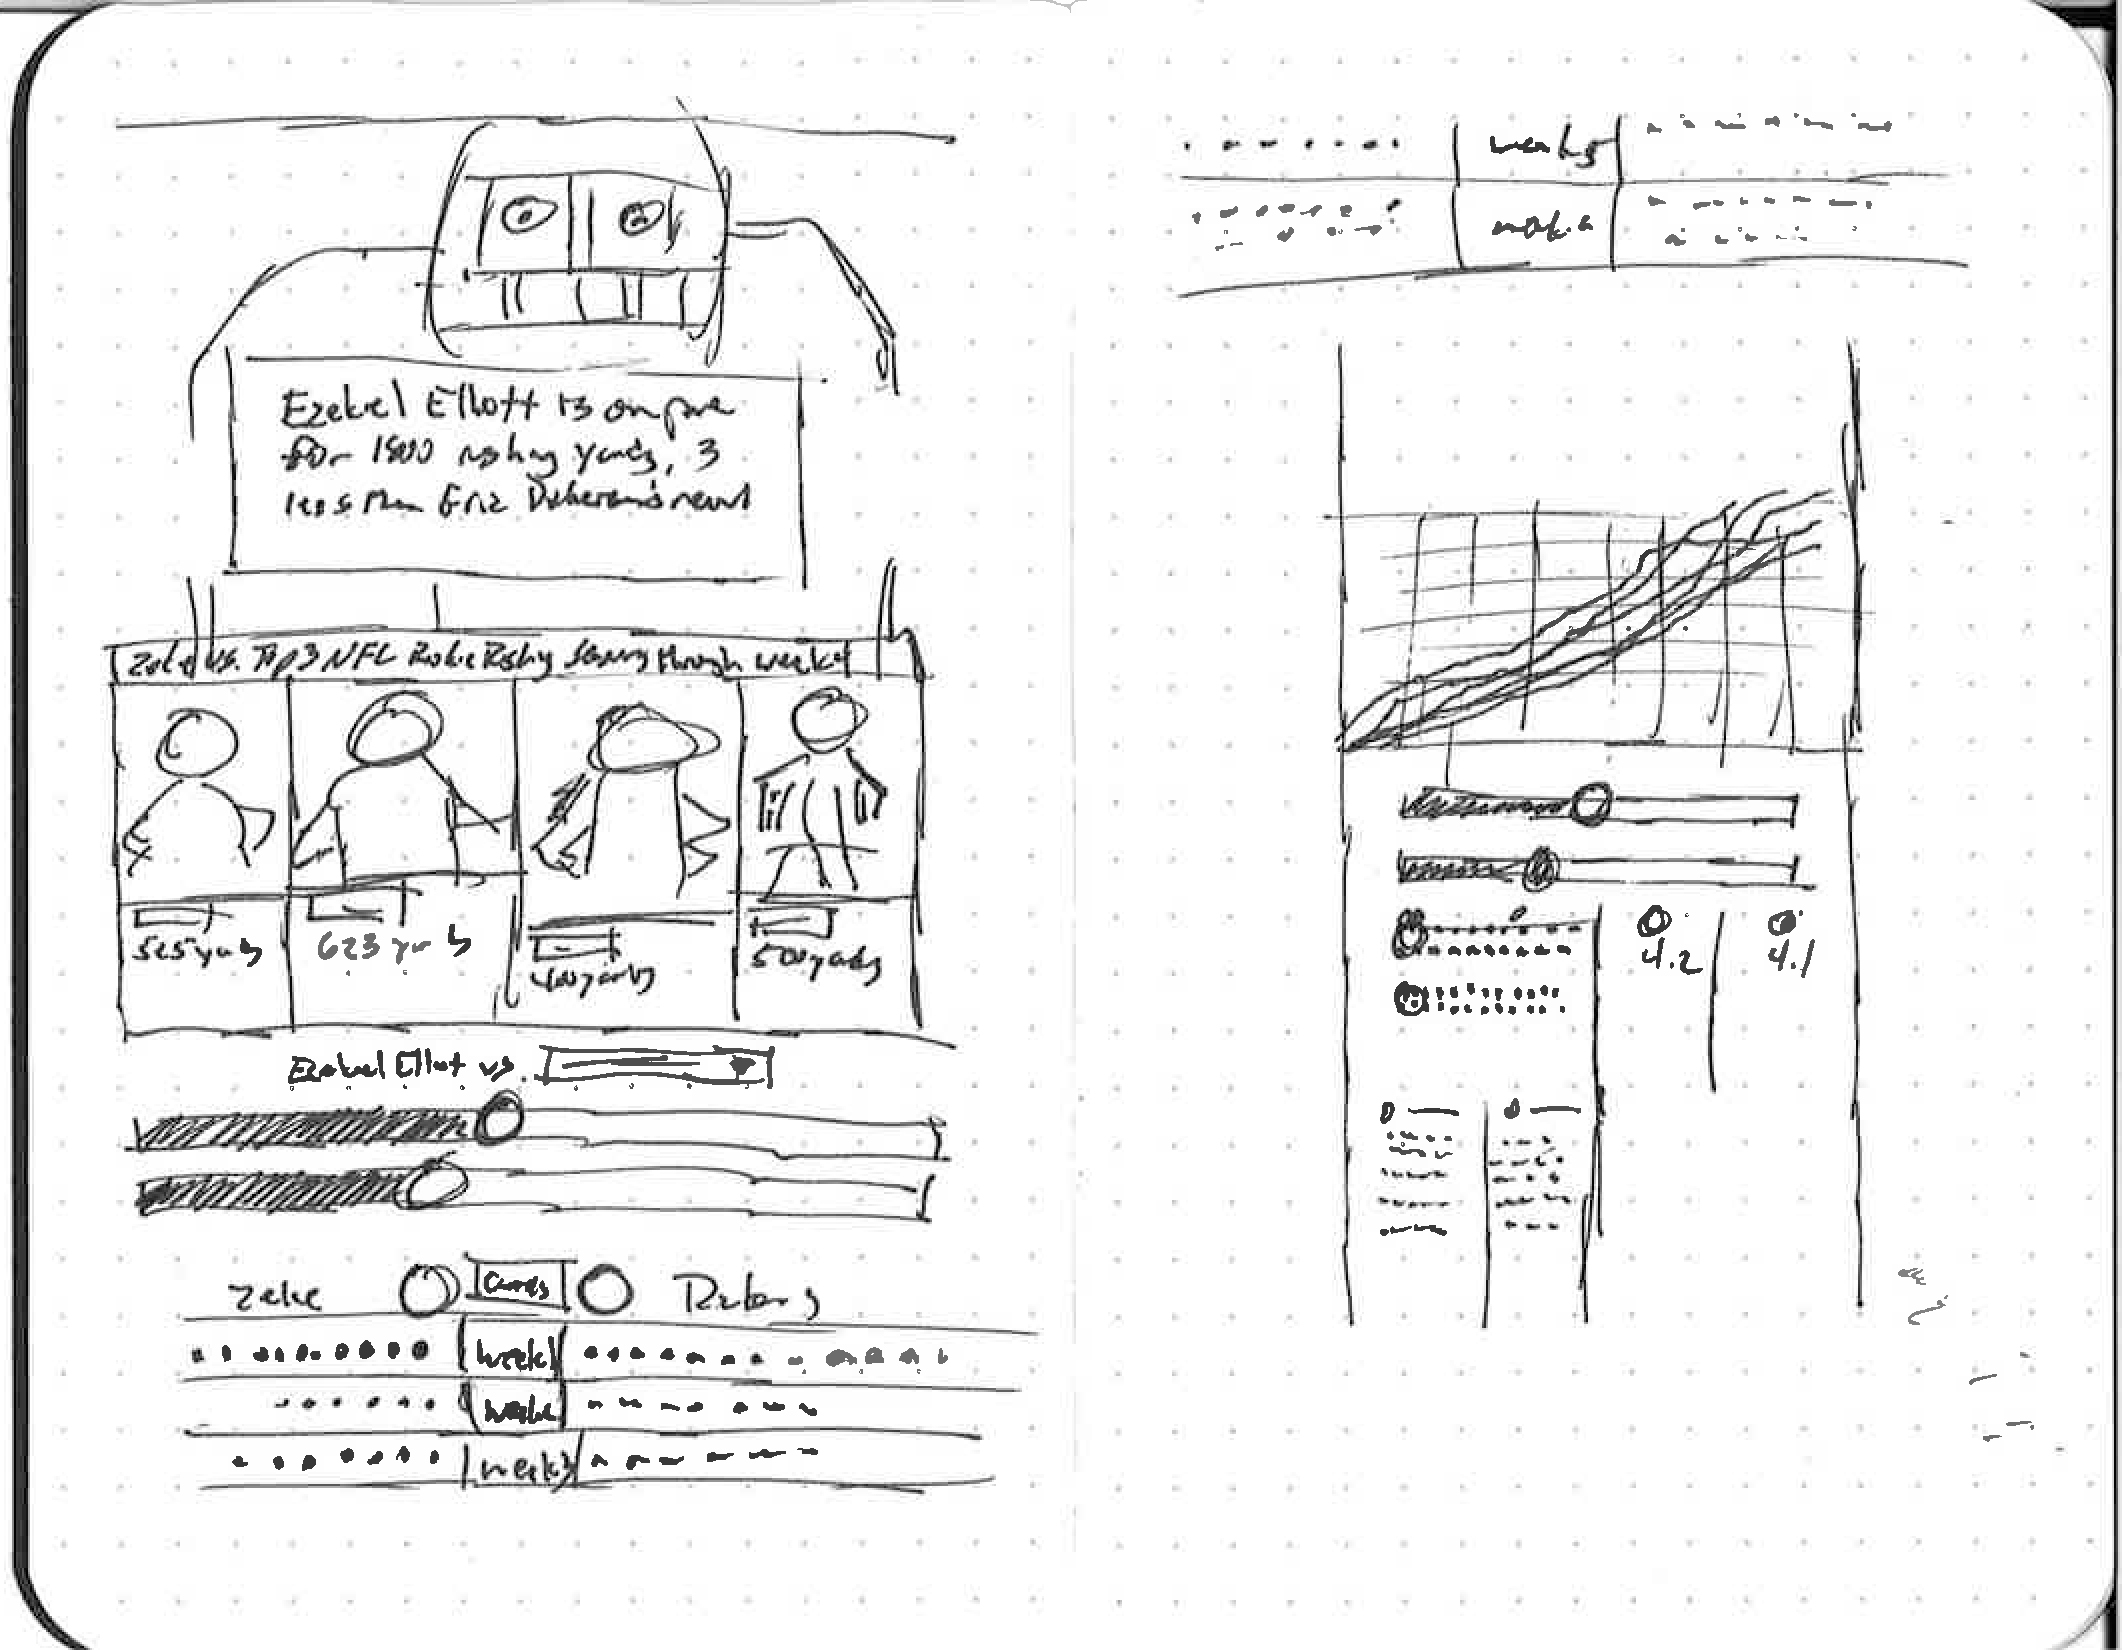 Ezekiel Elliott is on pace
for 1800 rushing yards, 3
less than Eric Dickerson's record
Zeke vs. Top 3 NFL Rookie Rushing Seasons through week 4
525 yards
623 yards
400 yards
500 yards
Ezekiel Elliot vs.
Zeke
Carries
week 1
week 2
week 3
week 5
4.2
4.1